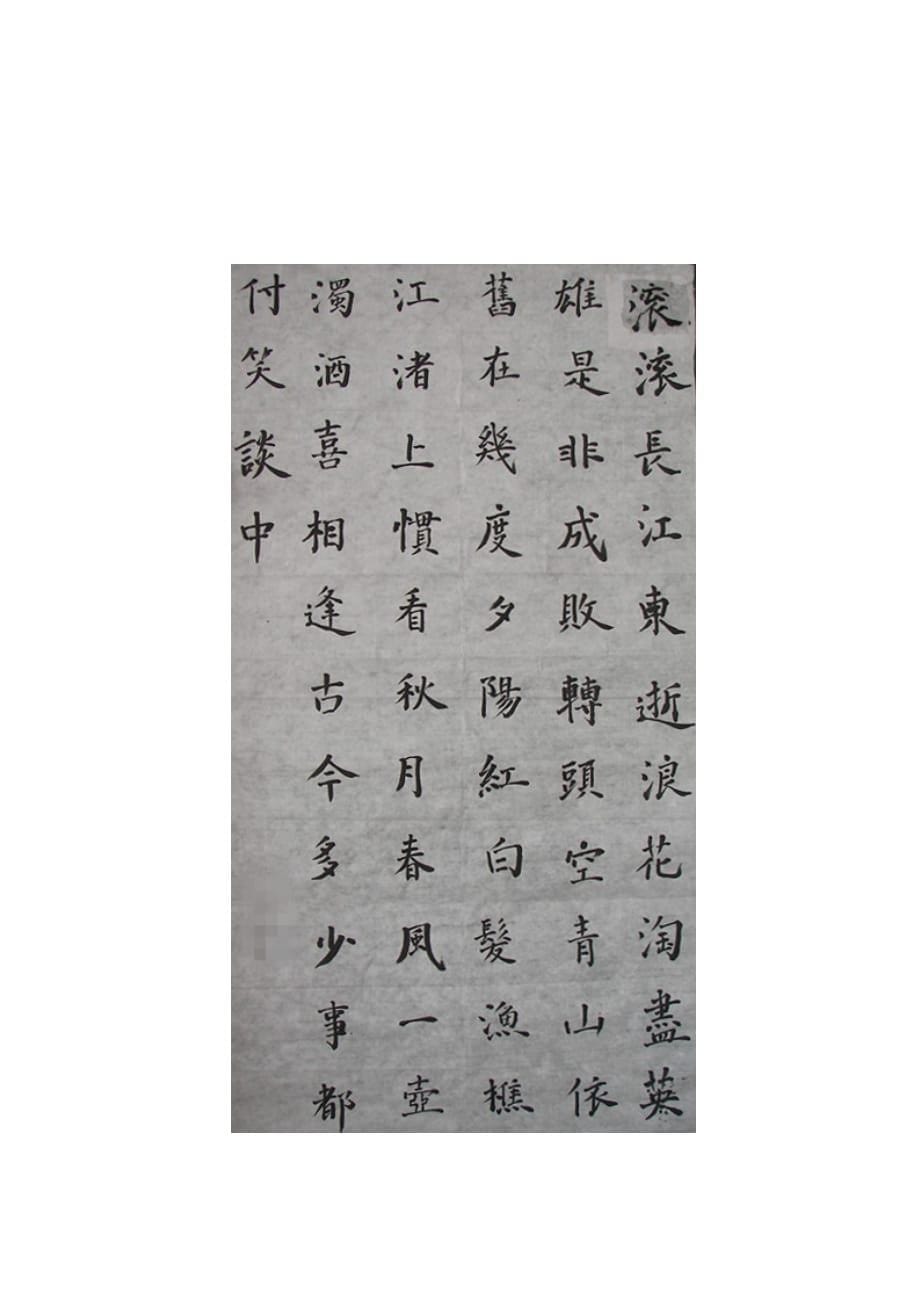 滚滚長江東逝浪花淘盡英
雄是非成敗轉頭空青山依
舊在幾度夕陽紅白髮漁樵
江渚上慣看秋月春風一壺
濁酒喜相逢古今多少事都
付笑談中